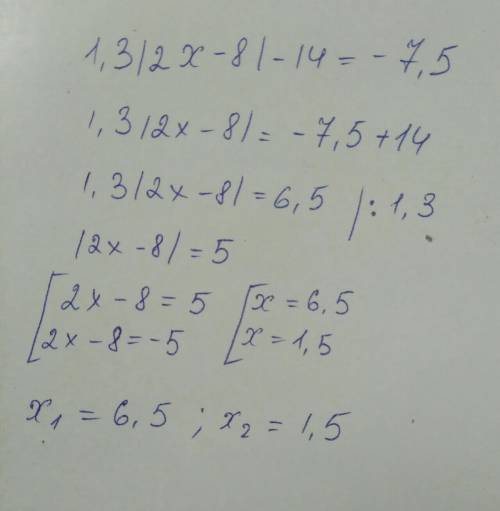 1,3|2x-8|-14=-7,5
1,3|2x-8|=-7,5+14
1,3|2x-8|=6,5 |:1,3
|2x-8|=5
[2x-8=5 [x=6,5
2x-8=-5 x=1,5
x₁=6,5; x₂=1,5